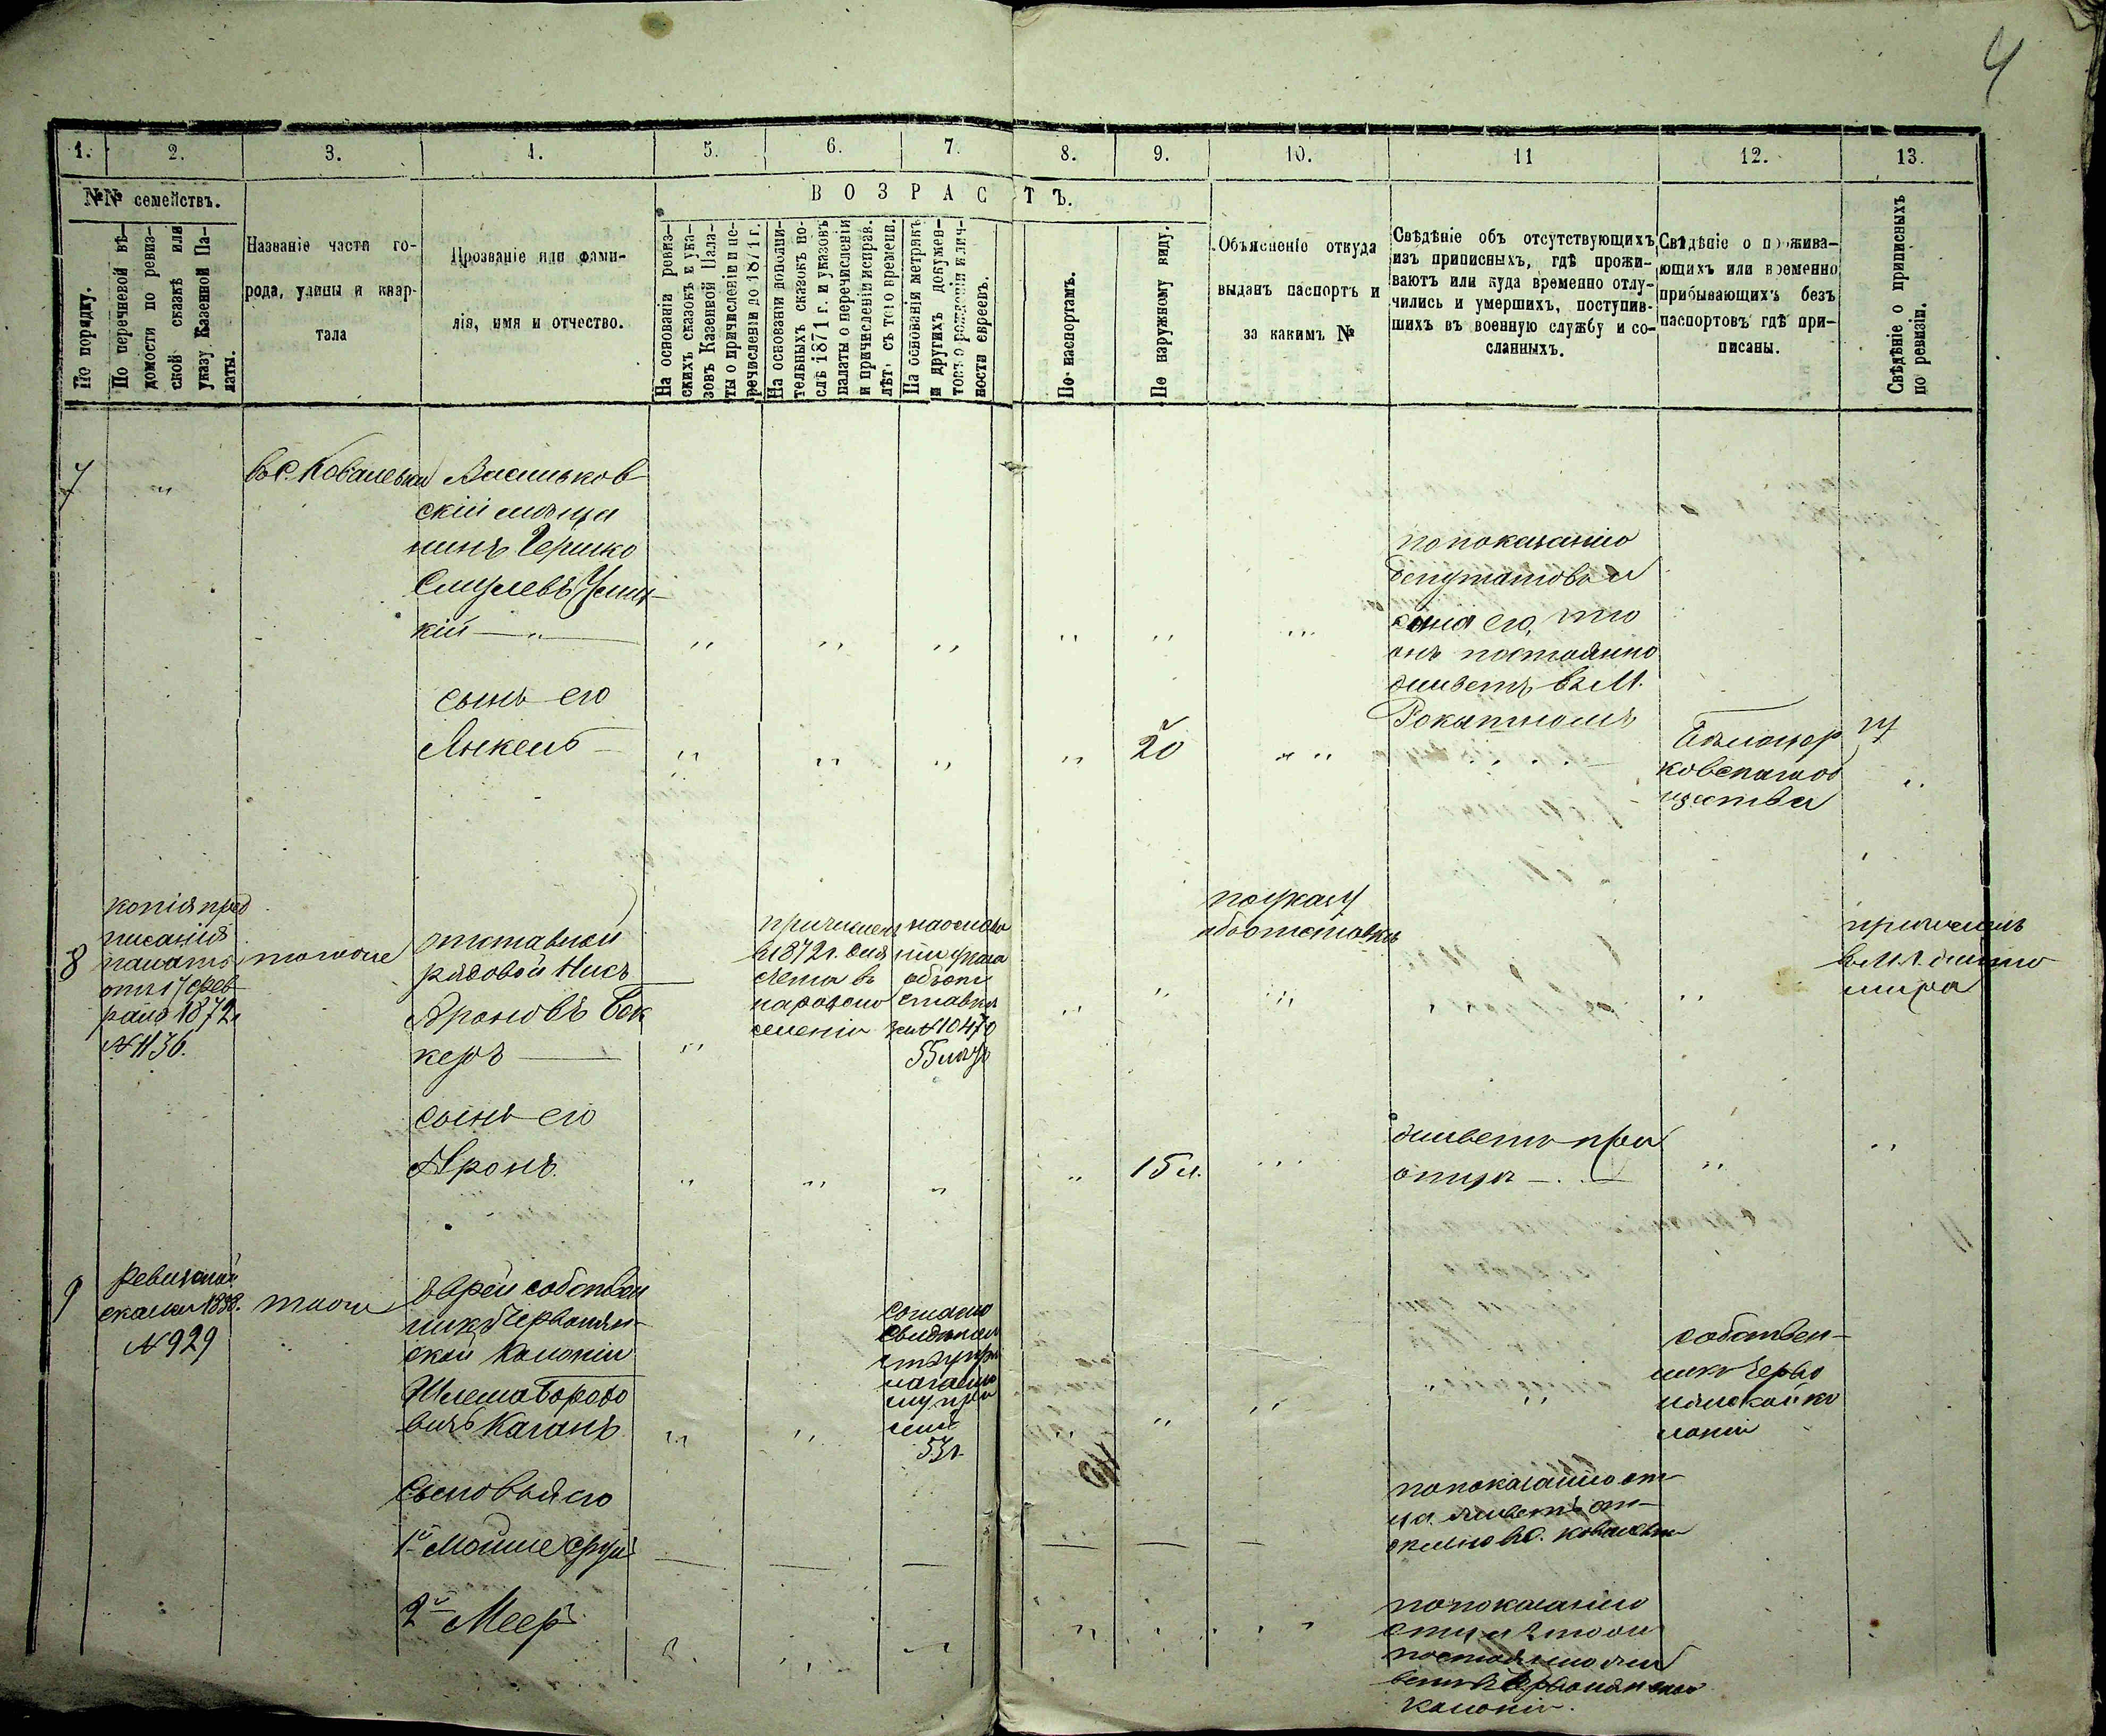 4
1.
2.
3.
4.
5.
6.
7.
8.
9.
10.
11
12.
13.
№№ семействъ.
По порядку.
По перечневой вѣ-
домости по ревиз-
ской сказкѣ или
указу Казенной Па-
латы.
Названіе части го-
рода, улицы и квар-
тала
Прозваніе или фами-
лія, имя и отчество.
ВОЗРАСТЪ.
На основаніи ревиз-
скихъ сказокъ и ука-
зовъ Казенной Пала-
ты о причисленіи и пе-
речисленіи до 1871 г.
На основаніи дополни-
тельныхъ сказокъ по-
слѣ 1871 г. и указовъ
палаты о перечисленіи
и причисленіи исправ.
лѣтъ съ того времени.
На основаніи метрикъ
и другихъ докумен-
товъ о рожденіи и лич-
ности евреевъ.
По паспортамъ.
По наружному виду.
Объясненіе откуда
выданъ паспортъ и
за какимъ №
Свѣдѣніе объ отсутствующихъ
изъ приписныхъ, гдѣ прожи-
ваютъ или куда временно отлу-
чились и умершихъ, поступив-
шихъ въ военную службу и со-
сланныхъ.
Свѣдѣніе о прожива-
ющихъ или временно
прибывающихъ безъ
паспортовъ гдѣ при-
писаны.
Свѣдѣніе о приписныхъ
по ревизіи.
7
въ С. Ковалевки
Васильков
скій мѣща
нинъ Гершко
кій
по показанію
депутатовъ и
сына его, что
онъ постоянно
живетъ въ М.
Рокитномъ
сынъ его
Янкель
20
Бѣлоцер
ковскаго об
щества
8
копія пред
писанія
палаты
отъ 17 фев
раля 1872
№ 1136.
тоже
отставной
рядовой Нисъ
Ароновъ Бек
керъ
причисленъ
в 1872 г. для
счета въ
народоно
селеніи
на основа
ніи указа
объ от
ставкѣ
за № 10470
55
по указу
объ отставкѣ
причисленъ
сынъ его
Аронъ.
15 л.
живетъ при
отцѣ
9
Ревизской
сказки 1858.
№ 929
тоже
еврей собствен
никъ Червонян-
ской колоніи
Шлема Борохо
вичъ Каганъ
согласно
53 г.
собствен-
никъ Черво
нянской ко
лоніи
Сыновья его
1й Мойше Сруль
по показанію от-
ца живетъ от-
дельно въ С. Ковалевки
2й Меер
по показанію
отца что он
постоянно жи
ветъ въ Червонянской
колоніи.